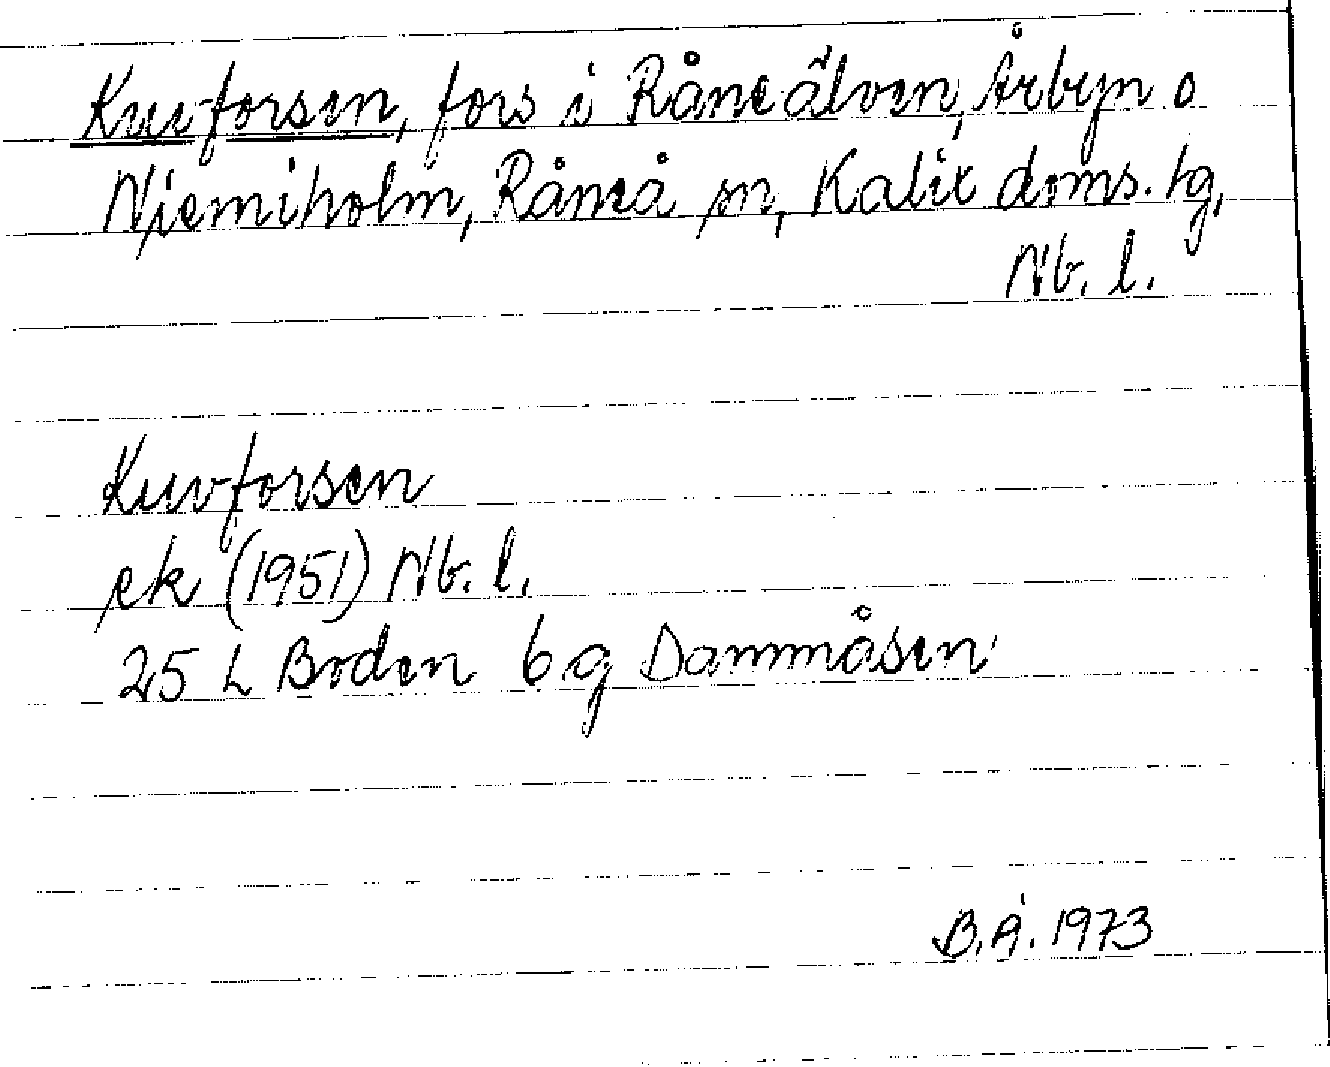 Kuvforsen, fors i Råneälven, Årbyn o
Njemiholm, Råneå sn, Kalix doms. tg,
Nb. l.
Kuvforsen
ek (1951) Nb. l.
25 L Boden 6 g Dammåsen
B.Å. 1973